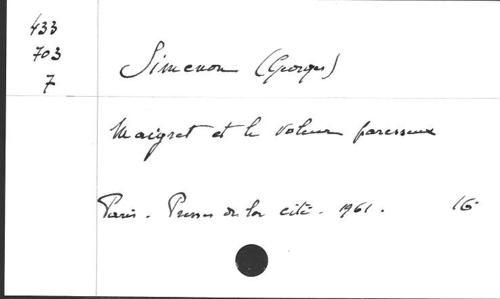 433
703
7
Simenon (Georges)
Maigret et le voleur paresseux
Paris. Presses de la cité. 1961. 16